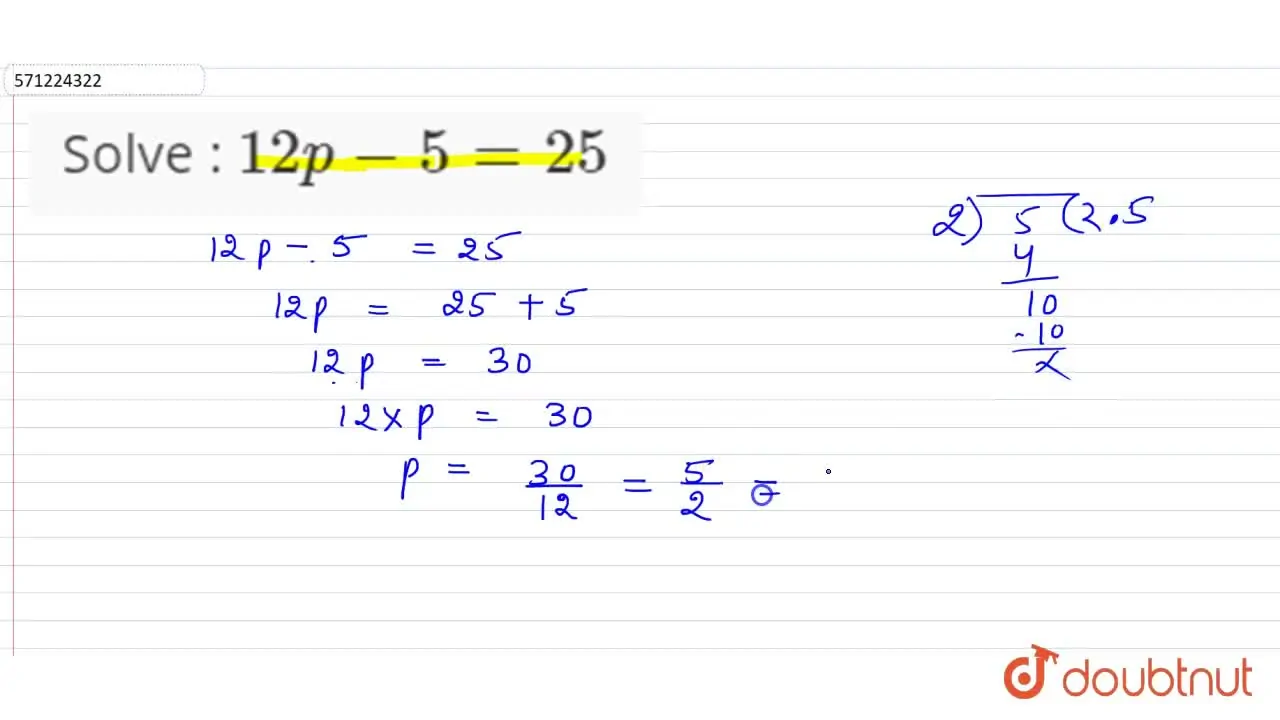 571224322
Solve : 12p − 5 = 25
12p − 5 = 25
12p = 25 + 5
12p = 30
12 × p = 30
p = 30/12 = 5/2 =
2) 5 (2.5
4
10
-10
x
doubtnut